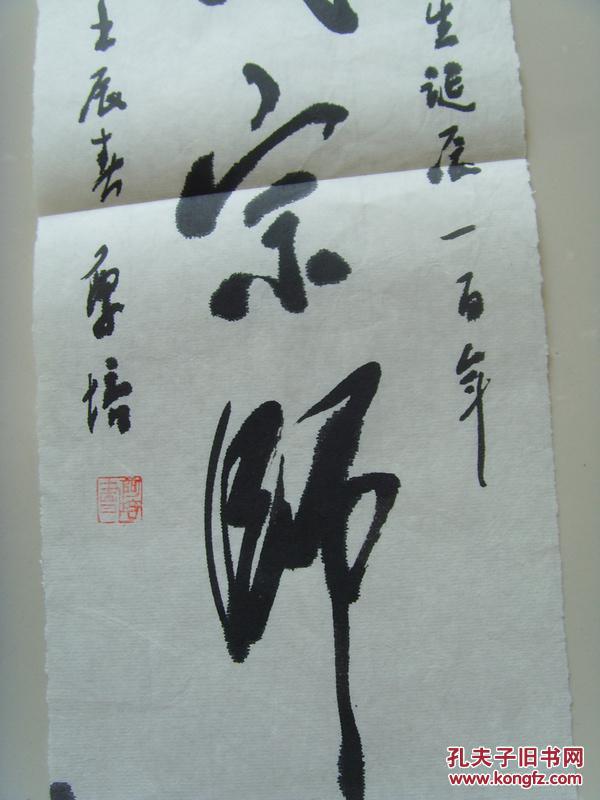 生诞辰一百年
宗师
壬辰春 厚培
孔夫子旧书网
www.kongfz.com